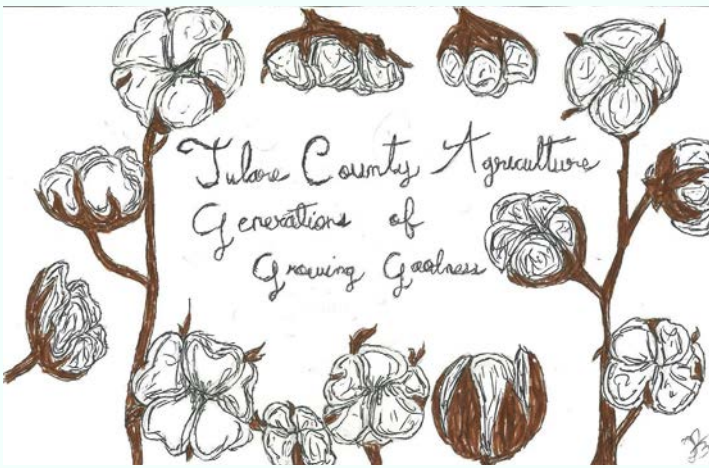 Tulare County Agriculture
Generations of
Growing Goodness